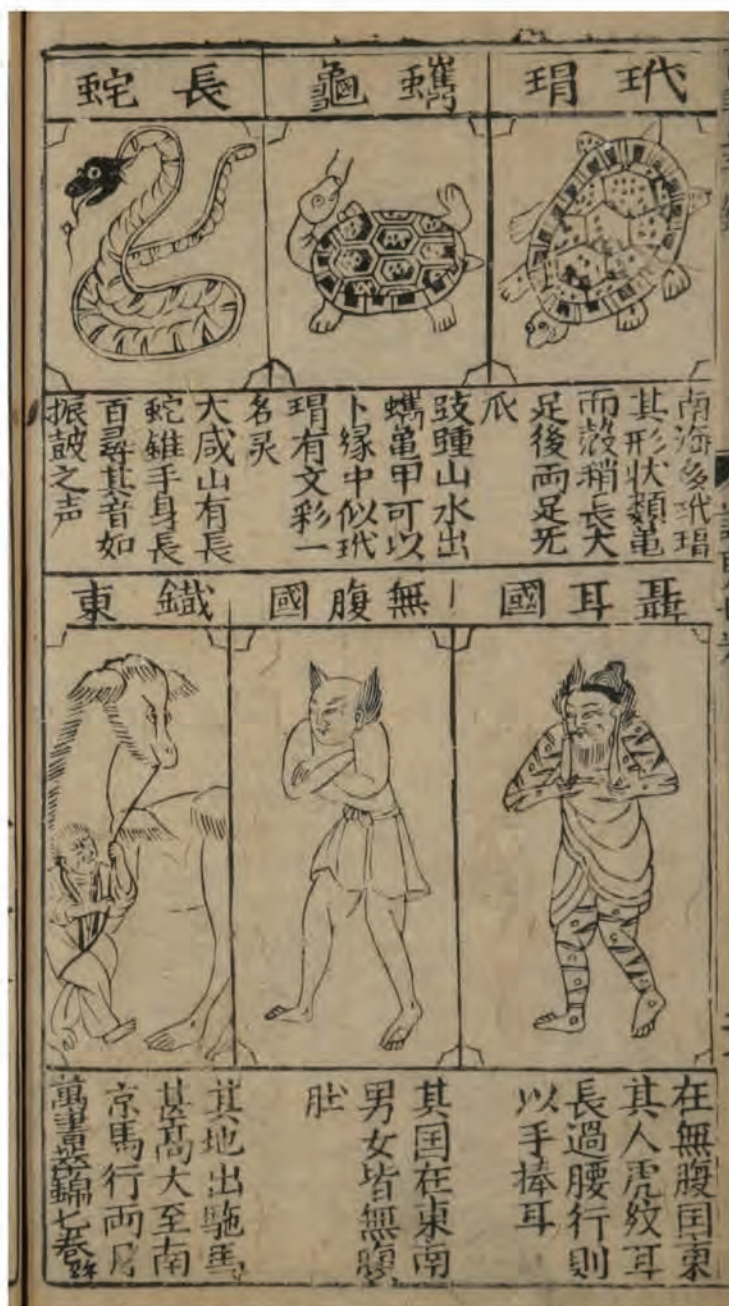 玳瑁
蠵龜
長蛇
南海多玳瑁
其形状類亀
而殼稍長大
足後両足无
爪
跂踵山水出
蠵亀甲可以
卜縁中似玳
瑁有文彩一
名灵
大咸山有長
蛇錐手身長
百尋其音如
振鼓之声
聶耳國
無腹國
鐵東
在無腹囯東
其人虎紋耳
長過腰行則
以手捧耳
其囯在東南
男女皆無腹
肚
其地出駞馬
甚高大至南
京馬行両月
萬書萃錦七卷終